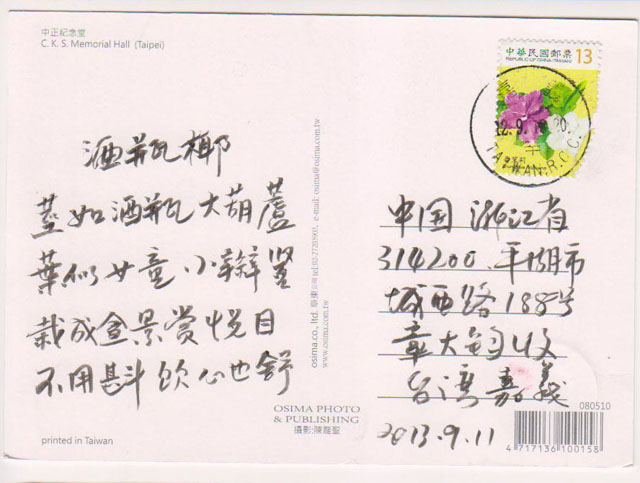 中正紀念堂
C. K. S. Memorial Hall (Taipei)
酒瓶椰
莖如酒瓶大葫蘆
葉似女童小辮豎
栽成盆景賞悅目
不用斟斗飲心也舒
printed in Taiwan
osima.co., ltd.
www.osima.com.tw
e-mail: osima@osima.com.tw
OSIMA PHOTO
& PUBLISHING
攝影:陳龍聖
中華民國郵票 13
REPUBLIC OF CHINA (TAIWAN)
TAIWAN.R.O.C.
中国 浙江省
314200 平湖市
城西路188号
章大钧收
台湾嘉義
2013.9.11
080510
4 717136 100158